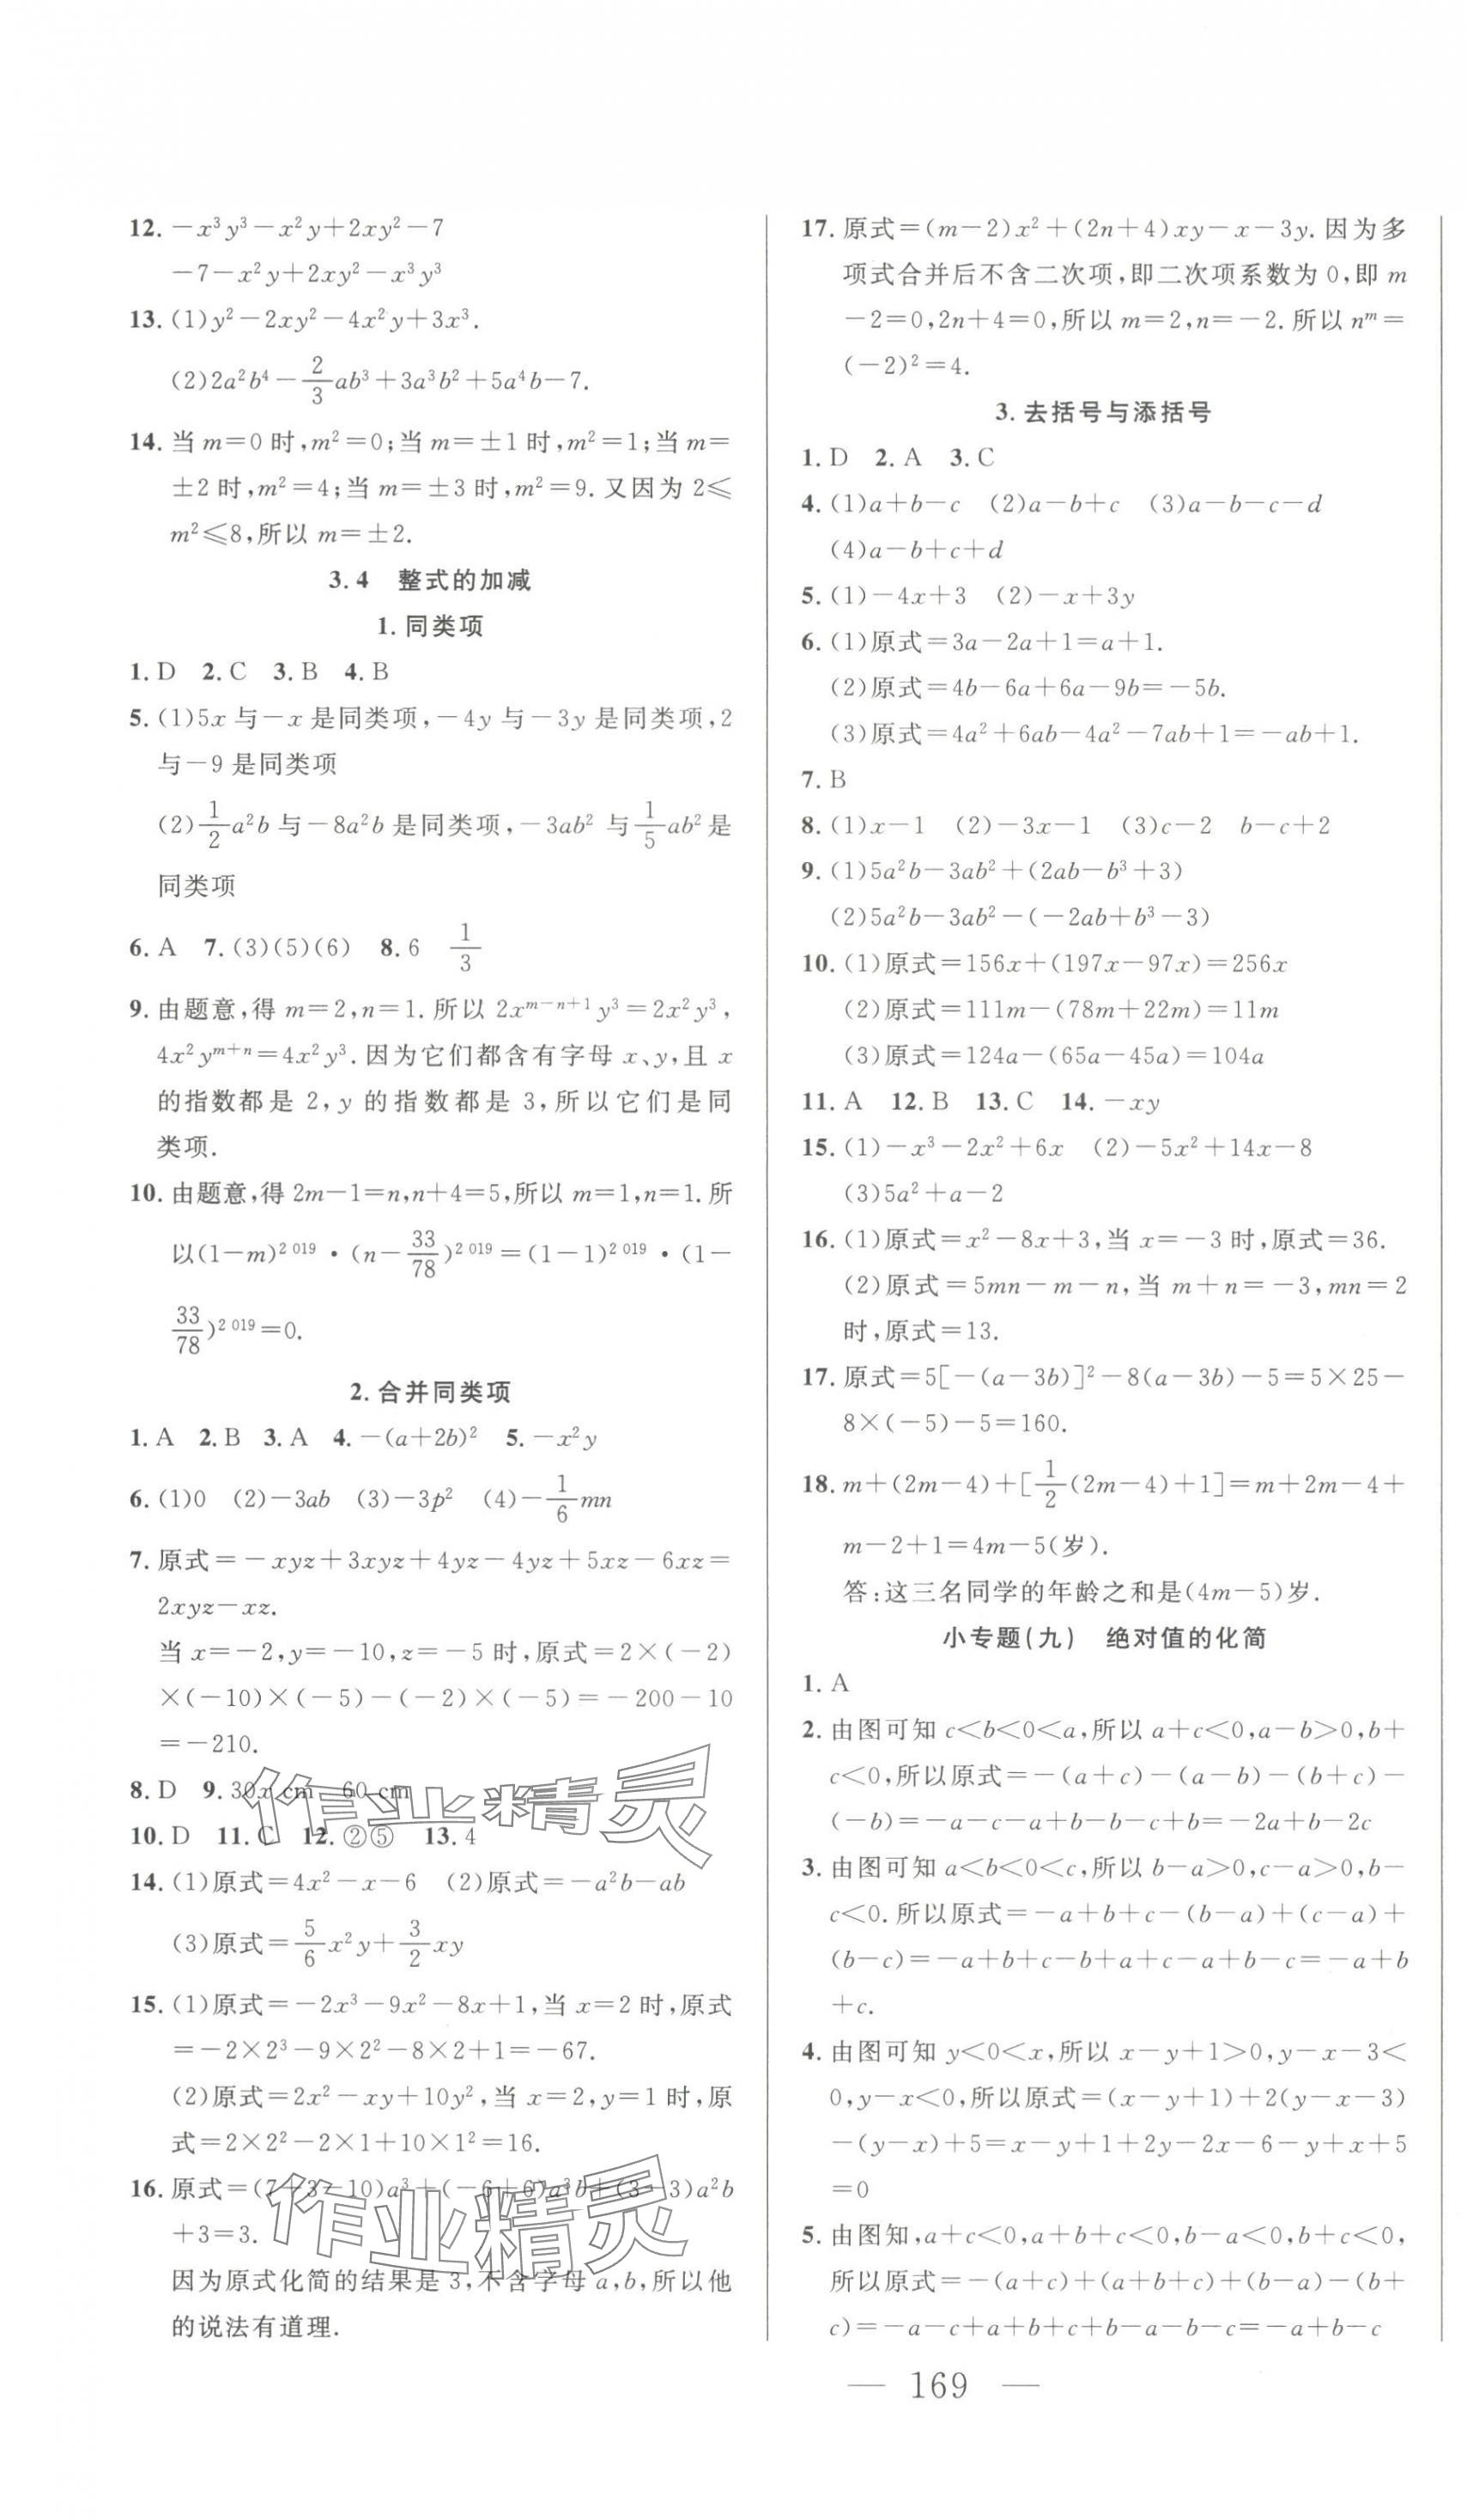 12. －x³y³－x²y＋2xy²－7
－7－x²y＋2xy²－x³y³
13. (1)y²－2xy²－4x²y＋3x³.
(2)2a²b⁴－2/3ab³＋3a³b²＋5a⁴b－7.
14. 当 m＝0 时,m²＝0;当 m＝±1 时,m²＝1;当 m＝
±2 时,m²＝4;当 m＝±3 时,m²＝9. 又因为 2≤
m²≤8,所以 m＝±2.
3.4 整式的加减
1. 同类项
1. D 2. C 3. B 4. B
5. (1)5x 与－x 是同类项,－4y 与－3y 是同类项,2
与－9 是同类项
(2)1/2a²b 与－8a²b 是同类项,－3ab² 与1/5ab² 是
同类项
6. A 7. (3)(5)(6) 8. 6 1/3
9. 由题意,得 m＝2,n＝1. 所以 2x^(m－n＋1)y³＝2x²y³,
4x²y^(m＋n)＝4x²y³. 因为它们都含有字母 x、y,且 x
的指数都是 2,y 的指数都是 3,所以它们是同
类项.
10. 由题意,得 2m－1＝n,n＋4＝5,所以 m＝1,n＝1. 所
以(1－m)^2 019·(n－33/78)^2 019＝(1－1)^2 019·(1－
33/78)^2 019＝0.
2. 合并同类项
1. A 2. B 3. A 4. －(a＋2b)² 5. －x²y
6. (1)0 (2)－3ab (3)－3p² (4)－1/6mn
7. 原式＝－xyz＋3xyz＋4yz－4yz＋5xz－6xz＝
2xyz－xz.
当 x＝－2,y＝－10,z＝－5 时,原式＝2×(－2)
×(－10)×(－5)－(－2)×(－5)＝－200－10
＝－210.
8. D 9. 30x cm 60 cm
10. D 11. C 12. ②⑤ 13. 4
14. (1)原式＝4x²－x－6 (2)原式＝－a²b－ab
(3)原式＝5/6x²y＋3/2xy
15. (1)原式＝－2x³－9x²－8x＋1,当 x＝2 时,原式
＝－2×2³－9×2²－8×2＋1＝－67.
(2)原式＝2x²－xy＋10y²,当 x＝2,y＝1 时,原
式＝2×2²－2×1＋10×1²＝16.
16. 原式＝(7＋3－10)a³＋(－6＋6)a³b＋(3－3)a²b
＋3＝3.
因为原式化简的结果是 3,不含字母 a,b,所以他
的说法有道理.
作业精灵
作业精灵
17. 原式＝(m－2)x²＋(2n＋4)xy－x－3y. 因为多
项式合并后不含二次项,即二次项系数为 0,即 m
－2＝0,2n＋4＝0,所以 m＝2,n＝－2. 所以 n^m＝
(－2)²＝4.
3. 去括号与添括号
1. D 2. A 3. C
4. (1)a＋b－c (2)a－b＋c (3)a－b－c－d
(4)a－b＋c＋d
5. (1)－4x＋3 (2)－x＋3y
6. (1)原式＝3a－2a＋1＝a＋1.
(2)原式＝4b－6a＋6a－9b＝－5b.
(3)原式＝4a²＋6ab－4a²－7ab＋1＝－ab＋1.
7. B
8. (1)x－1 (2)－3x－1 (3)c－2 b－c＋2
9. (1)5a²b－3ab²＋(2ab－b³＋3)
(2)5a²b－3ab²－(－2ab＋b³－3)
10. (1)原式＝156x＋(197x－97x)＝256x
(2)原式＝111m－(78m＋22m)＝11m
(3)原式＝124a－(65a－45a)＝104a
11. A 12. B 13. C 14. －xy
15. (1)－x³－2x²＋6x (2)－5x²＋14x－8
(3)5a²＋a－2
16. (1)原式＝x²－8x＋3,当 x＝－3 时,原式＝36.
(2)原式＝5mn－m－n,当 m＋n＝－3,mn＝2
时,原式＝13.
17. 原式＝5[－(a－3b)]²－8(a－3b)－5＝5×25－
8×(－5)－5＝160.
18. m＋(2m－4)＋[1/2(2m－4)＋1]＝m＋2m－4＋
m－2＋1＝4m－5(岁).
答:这三名同学的年龄之和是(4m－5)岁.
小专题(九) 绝对值的化简
1. A
2. 由图可知 c＜b＜0＜a,所以 a＋c＜0,a－b＞0,b＋
c＜0,所以原式＝－(a＋c)－(a－b)－(b＋c)－
(－b)＝－a－c－a＋b－b－c＋b＝－2a＋b－2c
3. 由图可知 a＜b＜0＜c,所以 b－a＞0,c－a＞0,b－
c＜0. 所以原式＝－a＋b＋c－(b－a)＋(c－a)＋
(b－c)＝－a＋b＋c－b＋a＋c－a＋b－c＝－a＋b
＋c.
4. 由图可知 y＜0＜x,所以 x－y＋1＞0,y－x－3＜
0,y－x＜0,所以原式＝(x－y＋1)＋2(y－x－3)
－(y－x)＋5＝x－y＋1＋2y－2x－6－y＋x＋5
＝0
5. 由图知,a＋c＜0,a＋b＋c＜0,b－a＜0,b＋c＜0,
所以原式＝－(a＋c)＋(a＋b＋c)＋(b－a)－(b＋
c)＝－a－c＋a＋b＋c＋b－a－b－c＝－a＋b－c
— 169 —